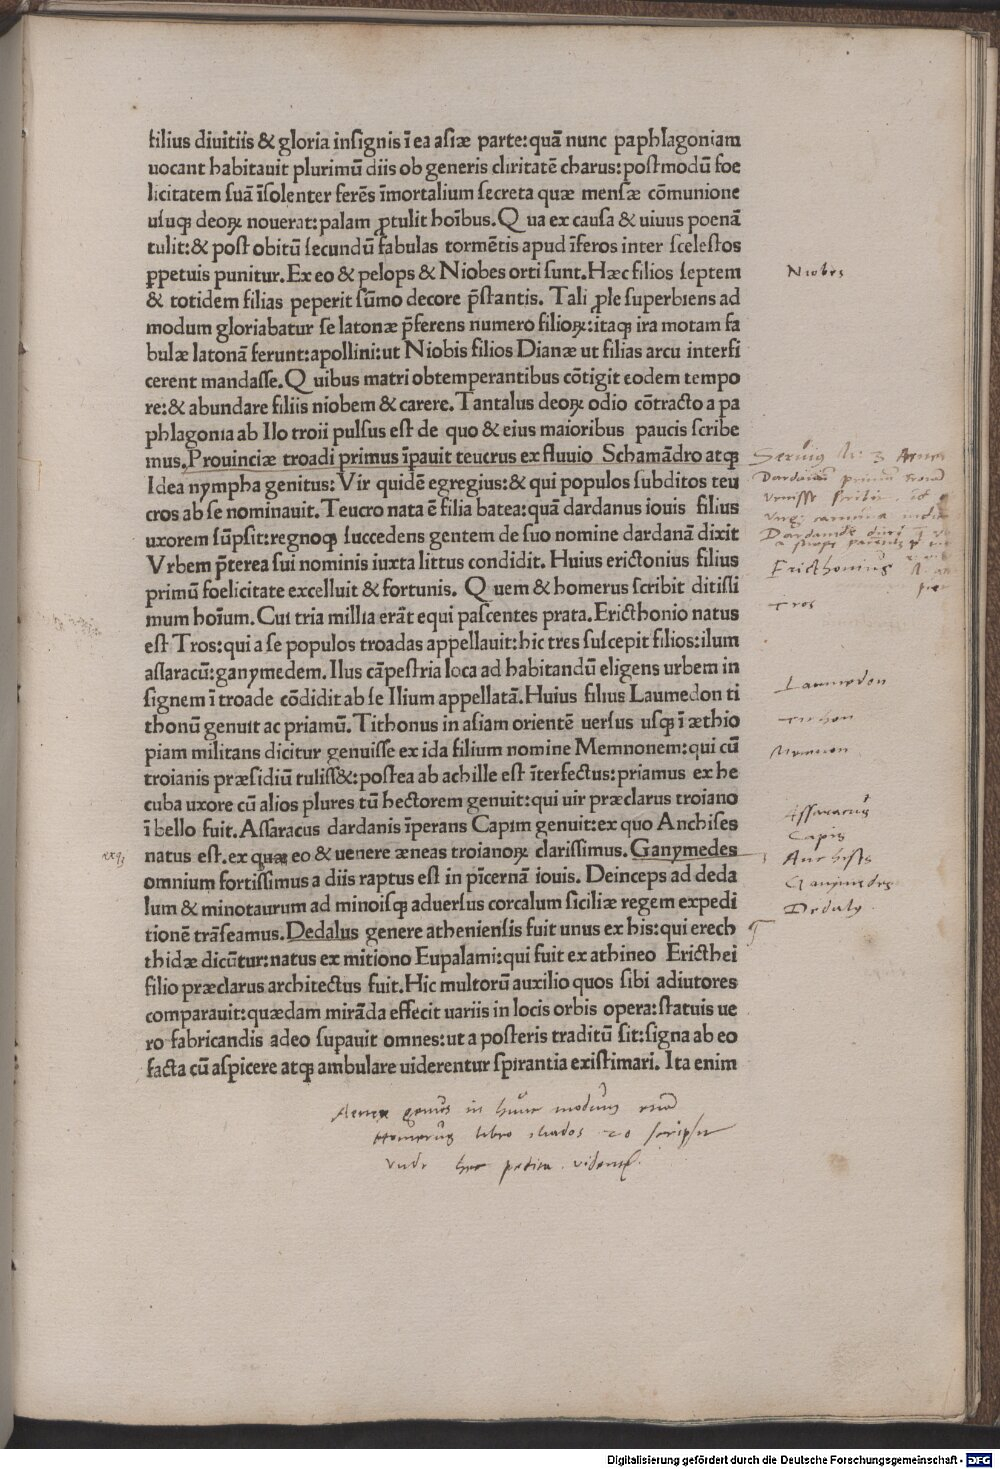 filius diuitiis & gloria insignis ī ea asiæ parte: quā nunc paphlagoniam
uocant habitauit plurimū diis ob generis clıritatē charus: postmodū foe
licitatem suā īsolenter ferēs īmortalium secreta quæ mensæ cōmunione
usuqꝫ deoꝝ nouerat: palam ꝓtulit hoībus. Qua ex causa & uiuus poenā
tulit: & post obitū secundū fabulas tormētis apud īferos inter scelestos
ꝑpetuis punitur. Ex eo & pelops & Niobes orti sunt. Hæc filios septem
Niobes
& totidem filias peperit sūmo decore p̄stantis. Tali ꝓle superbiens ad
modum gloriabatur se latonæ p̄ferens numero filioꝝ: itaqꝫ ira motam fa
bulæ latonā ferunt: apollini: ut Niobis filios Dianæ ut filias arcu interfi
cerent mandasse. Quibus matri obtemperantibus cōtigit eodem tempo
re: & abundare filiis niobem & carere. Tantalus deoꝝ odio cōtracto a pa
phlagonia ab Ilo troii pulsus est de quo & eius maioribus paucis scribe
mus. Prouinciæ troadi primus īpauit teucrus ex fluuio Schamādro atqꝫ
Idea nympha genitus: Vir quidē egregius: & qui populos subditos teu
cros ab se nominauit. Teucro nata ē filia batea: quā dardanus iouis filius
uxorem sūpsit: regnoqꝫ succedens gentem de suo nomine dardanā dixit
Vrbem p̄terea sui nominis iuxta littus condidit. Huius erictonius filius
Ericthonius
primū foelicitate excelluit & fortunis. Quem & homerus scribit ditissi
mum hoīum. Cui tria millia erāt equi pascentes prata. Ericthonio natus
Tros
est Tros: qui a se populos troadas appellauit: hic tres suscepit filios: ilum
assaracū: ganymedem. Ilus cāpestria loca ad habitandū eligens urbem in
signem ī troade cōdidit ab se Ilium appellatā. Huius filius Laumedon ti
Laumedon
thonū genuit ac priamū. Tithonus in asiam orientē uersus usqꝫ ī æthio
piam militans dicitur genuisse ex ida filium nomine Memnonem: qui cū
troianis præsidiū tuliss&: postea ab achille est īterfectus: priamus ex he
cuba uxore cū alios plures tū hectorem genuit: qui uir præclarus troiano
Assaracus
ī bello fuit. Assaracus dardanis īperans Capim genuit: ex quo Anchises
Capis
natus est. ex quas eo & uenere æneas troianoꝝ clarissimus. Ganymedes
Anchises
omnium fortissimus a diis raptus est in pīcernā iouis. Deinceps ad deda
Ganymedes
lum & minotaurum ad minoisqꝫ aduersus corcalum siciliæ regem expedi
Dedalus
tionē trāseamus. Dedalus genere atheniensis fuit unus ex his: qui erech
thidæ dicūtur: natus ex mitiono Eupalami: qui fuit ex athineo Ericthei
filio præclarus architectus fuit. Hic multorū auxilio quos sibi adiutores
comparauit: quædam mirāda effecit uariis in locis orbis opera: statuis ue
ro fabricandis adeo supauit omnes: ut a posteris traditū sit: signa ab eo
facta cū aspicere atqꝫ ambulare uiderentur spirantia existimari. Ita enim
Aeneæ genus in hunc modum etiam
Homerus libro iliados 20 scripsit
Vnde hec petita videntur.
Digitalisierung gefördert durch die Deutsche Forschungsgemeinschaft - DFG